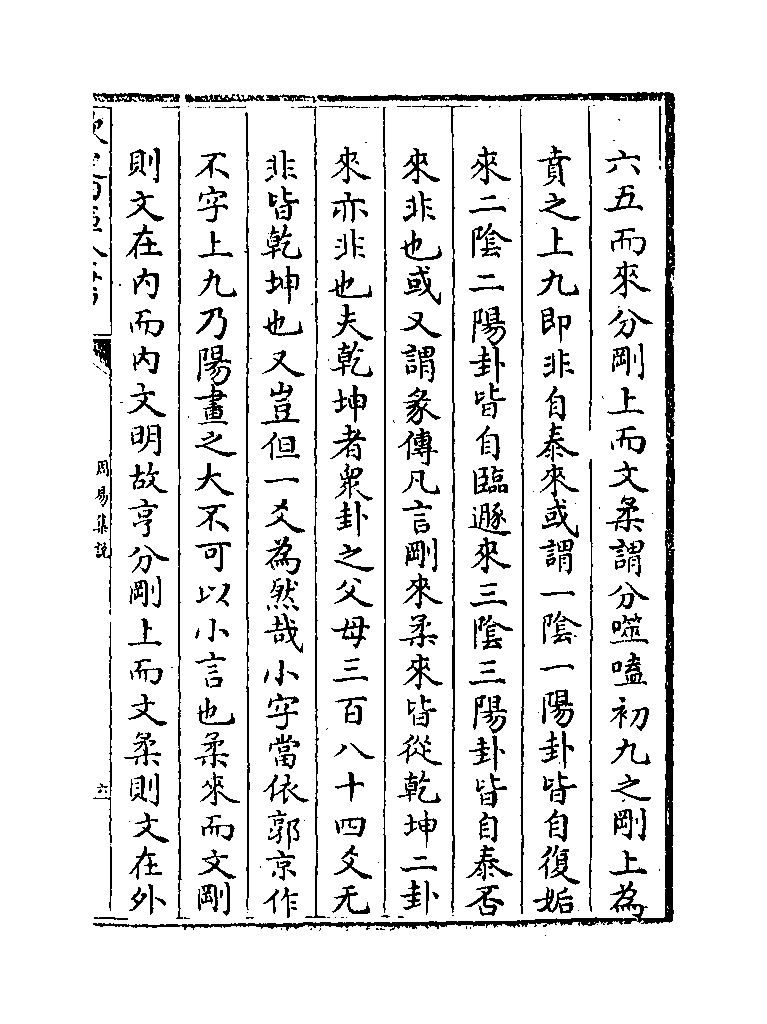 六五而來分剛上而文柔謂分噬嗑初九之剛上為
賁之上九即非自泰來或謂一陰一陽卦皆自復姤
來二陰二陽卦皆自臨遯來三陰三陽卦皆自泰否
來非也或又謂彖傳凡言剛來柔來皆從乾坤二卦
來亦非也夫乾坤者衆卦之父母三百八十四爻无
非皆乾坤也又豈但一爻為然哉小字當依郭京作
不字上九乃陽畫之大不可以小言也柔來而文剛
則文在内而内文明故亨分剛上而文柔則文在外
周易集說
六